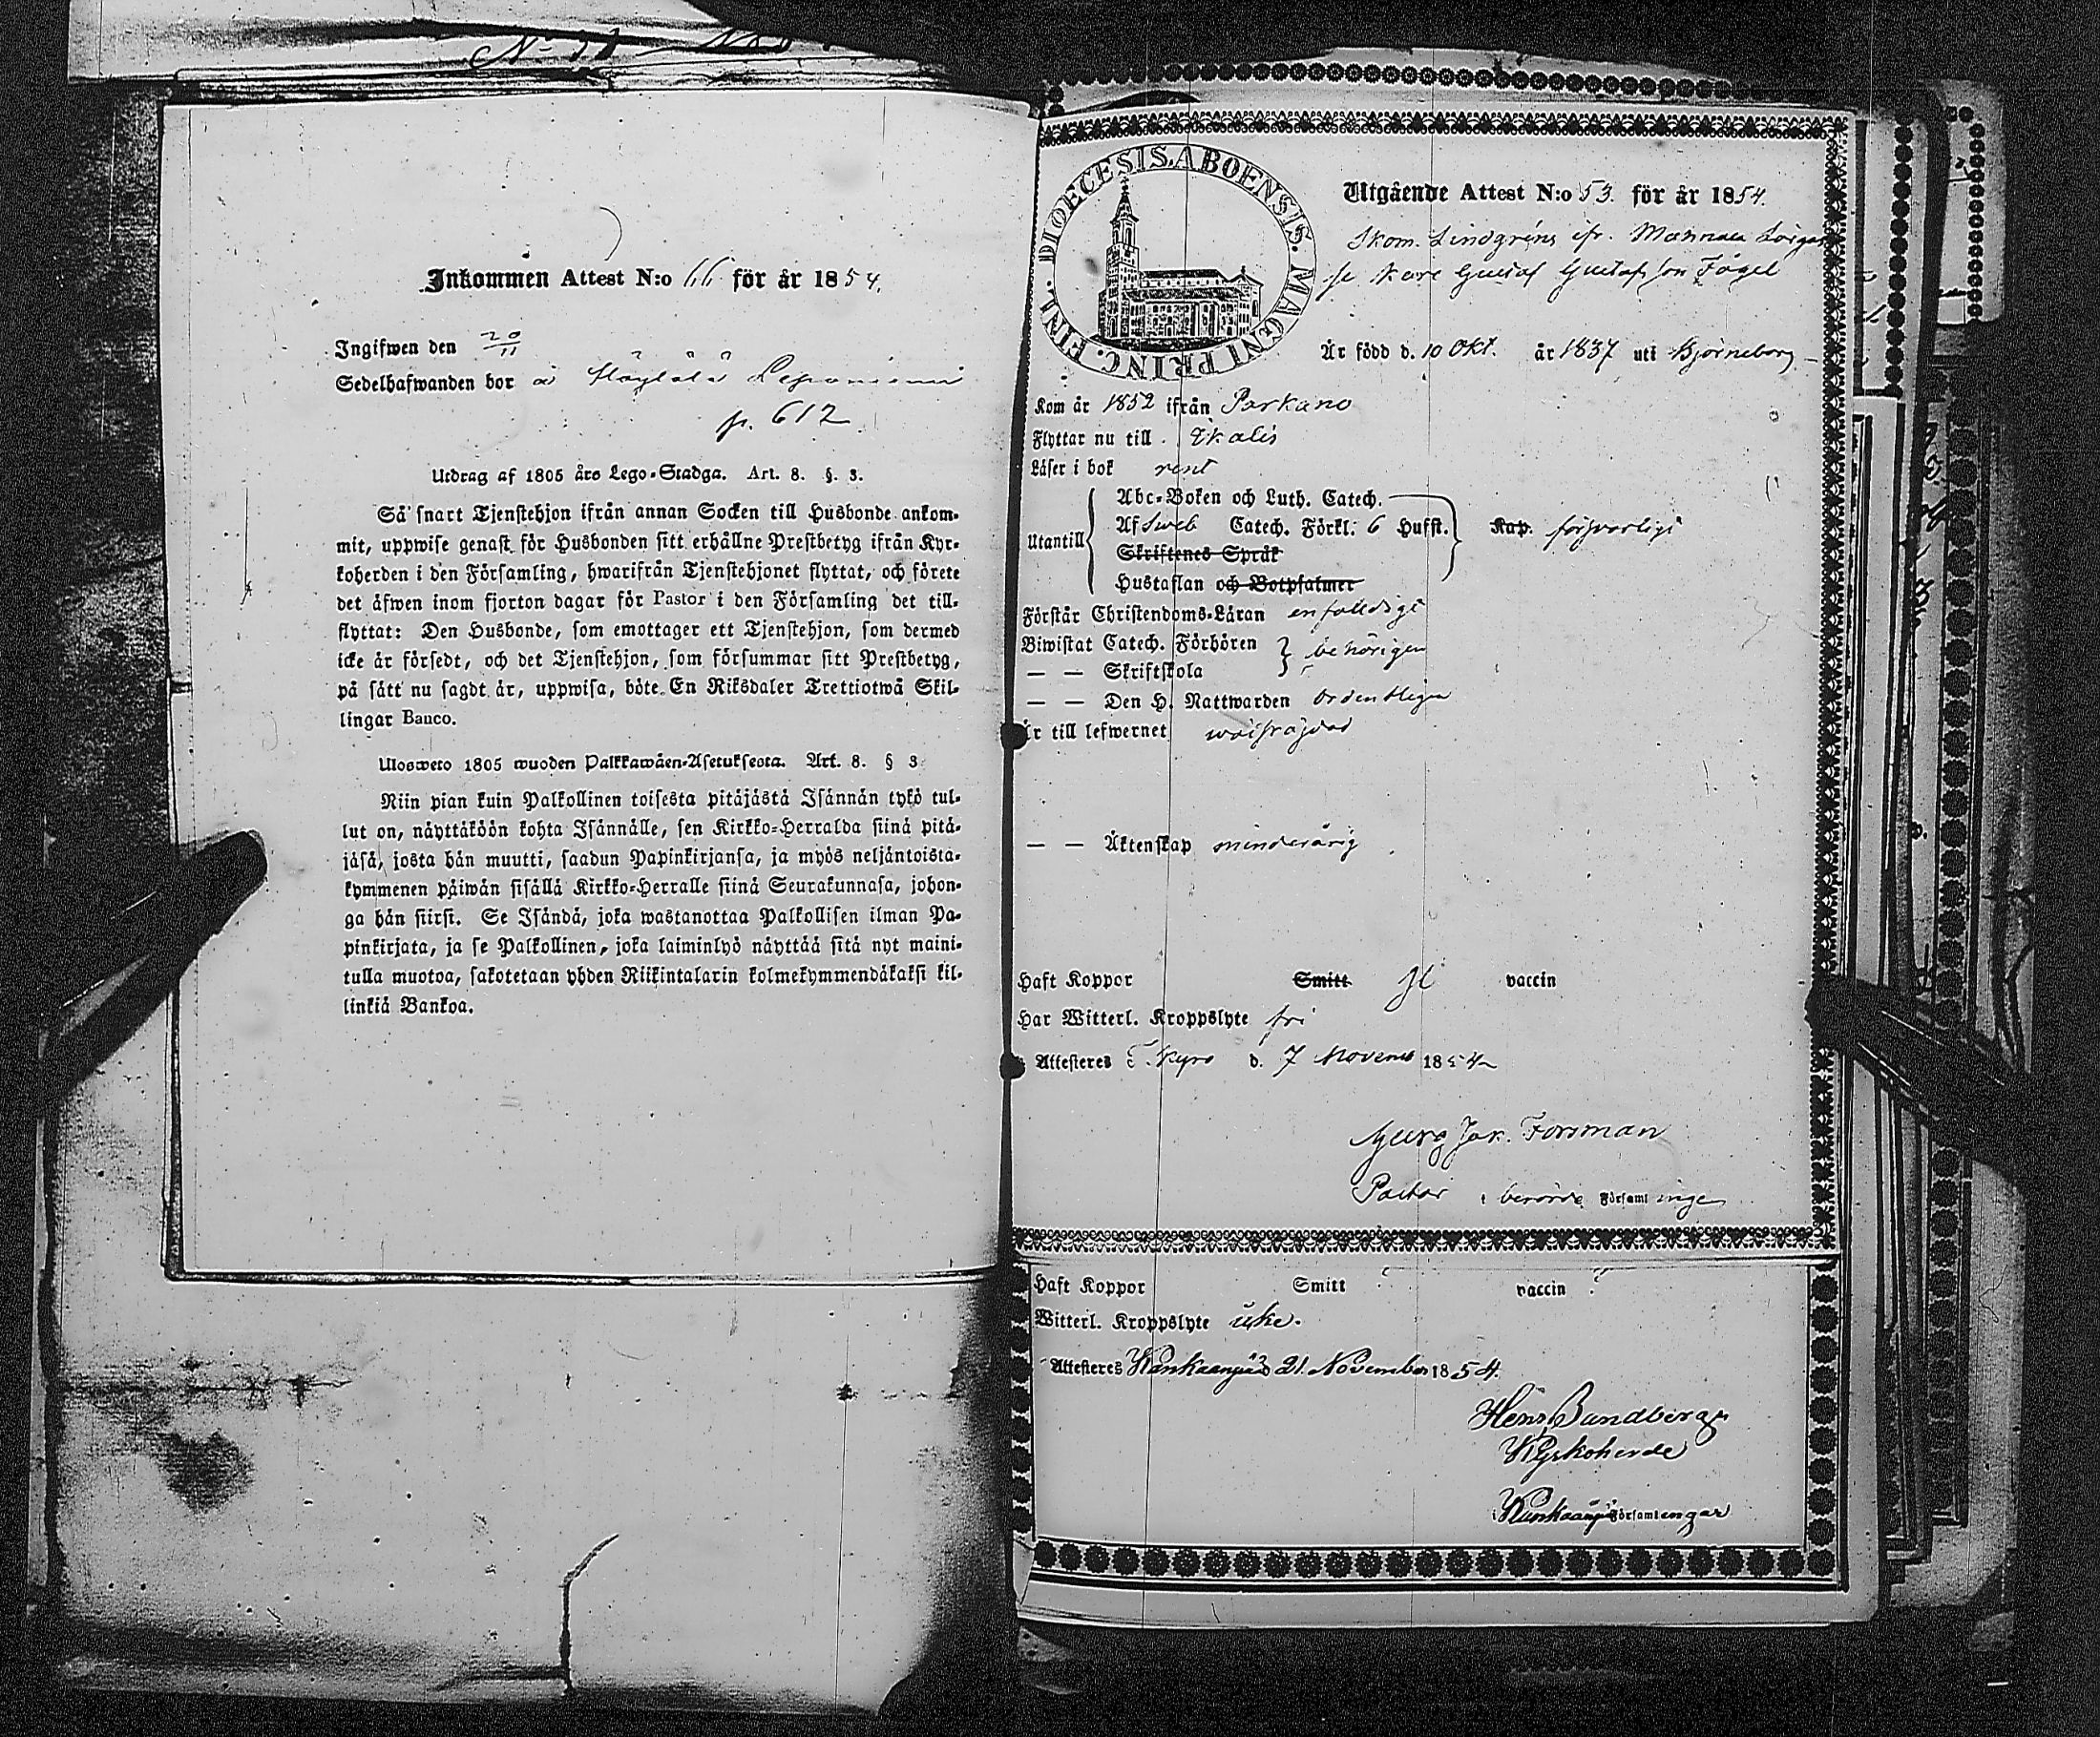 Inkommen Attest N:o 66 för år 1854.
Ingifwen den 20/11
Sedelhafwanden bor å
p. 612
Utdrag af 1805 års Lego-Stadga. Art. 8. §. 3.
Så snart Tjenstehjon ifrån annan Socken till Husbonde ankom-
mit, uppwise genast för Husbonden sitt erhållne Prestbetyg ifrån Kyr-
koherden i den Församling, hwarifrån Tjenstehjonet flyttat, och förete
det äfwen inom fjorton dagar för Pastor i den Församling det till-
flyttat: Den Husbonde, som emottager ett Tjenstehjon, som dermed
icke är försedt, och det Tjenstehjon, som försummar sitt Prestbetyg,
på sätt nu sagdt är, uppwisa, böte En Riksdaler Trettiotwå Skil-
lingar Bauco.
Ulosweto 1805 wuoden Palkkawäen-Asetuksesta. Art. 8. § 3
Niin pian kuin Palkollinen toisesta pitäjästä Isännän tykö tul-
lut on, näyttäköön kohta Isännälle, sen Kirkko-Herralda siinä pitä-
jäsä, josta hän muutti, saadun Papinkirjansa, ja myös neljäntoista-
kymmenen päiwän sisällä Kirkko-Herralle siinä Seurakunnasa, johon-
ga hän siirst. Se Isändä, joka wastanottaa Palkollisen ilman Pa-
pinkirjata, ja se Palkollinen, joka laiminlyö näyttää sitä nyt maini-
tulla muotoa, sakotetaan yhden Riikintalarin kolmekymmendäkaksi kil-
linkiä Bankoa.
DIOECESIS ABOENSIS. MAGNI PRINC. FINL.
Utgående Attest N:o 53. för år 1854.
Skom. Lindgréns ifr.
Gustaf Gustafsson Fogel
Är född d. 10 Okt. år 1837 uti Björneborg
Kom år 1852 ifrån Parkano
Flyttar nu till Ikalis
Läser i bok rent
Abc-Boken och Luth. Catech.
Utantill Af Sweb Catech. Förkl. 6 Hufst. Kap. försvarligt
Skriftenes Språk
Hustaflan och Botpsalmer
Förstår Christendoms-Läran enfaldigt
Biwistat Catech. Förhören behörigen
— — Skriftskola
— — Den H. Nattwarden ordentligen
Är till lefwernet wälfrägdad
— — Äktenskap minderårig
Haft Koppor Smitt vaccin
Har Witterl. Kroppslyte fri
Attesteres T. Kyro d. 7 Novemb 1854
Georg Jak. Forsman
Pastor i berörde Församlingen
Haft Koppor Smitt vaccin
Witterl. Kroppslyte icke.
Attesteres Kankaanpää 21. November 1854.
Kyrkoherde
i Kankaanpää Församlingar